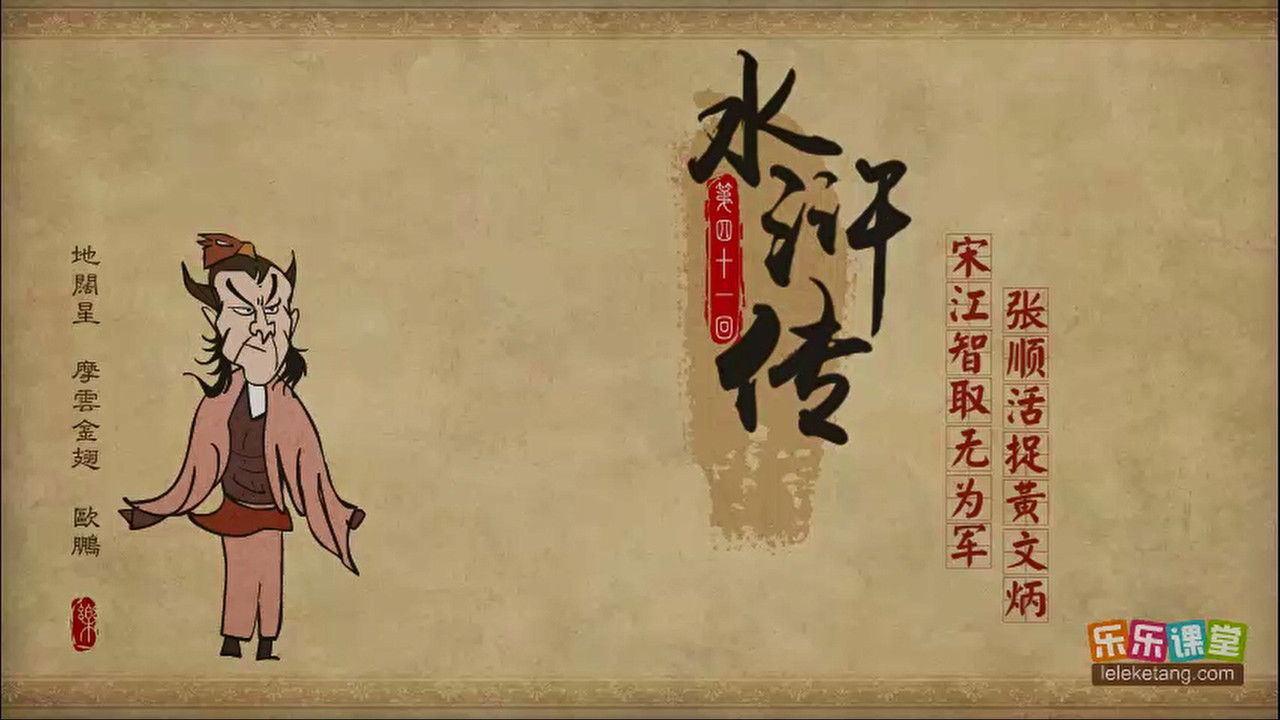 水浒传
第四十一回
宋江智取无为军
张顺活捉黄文炳
地闊星 摩雲金翅 歐鵬
樂
乐乐课堂
leleketang.com